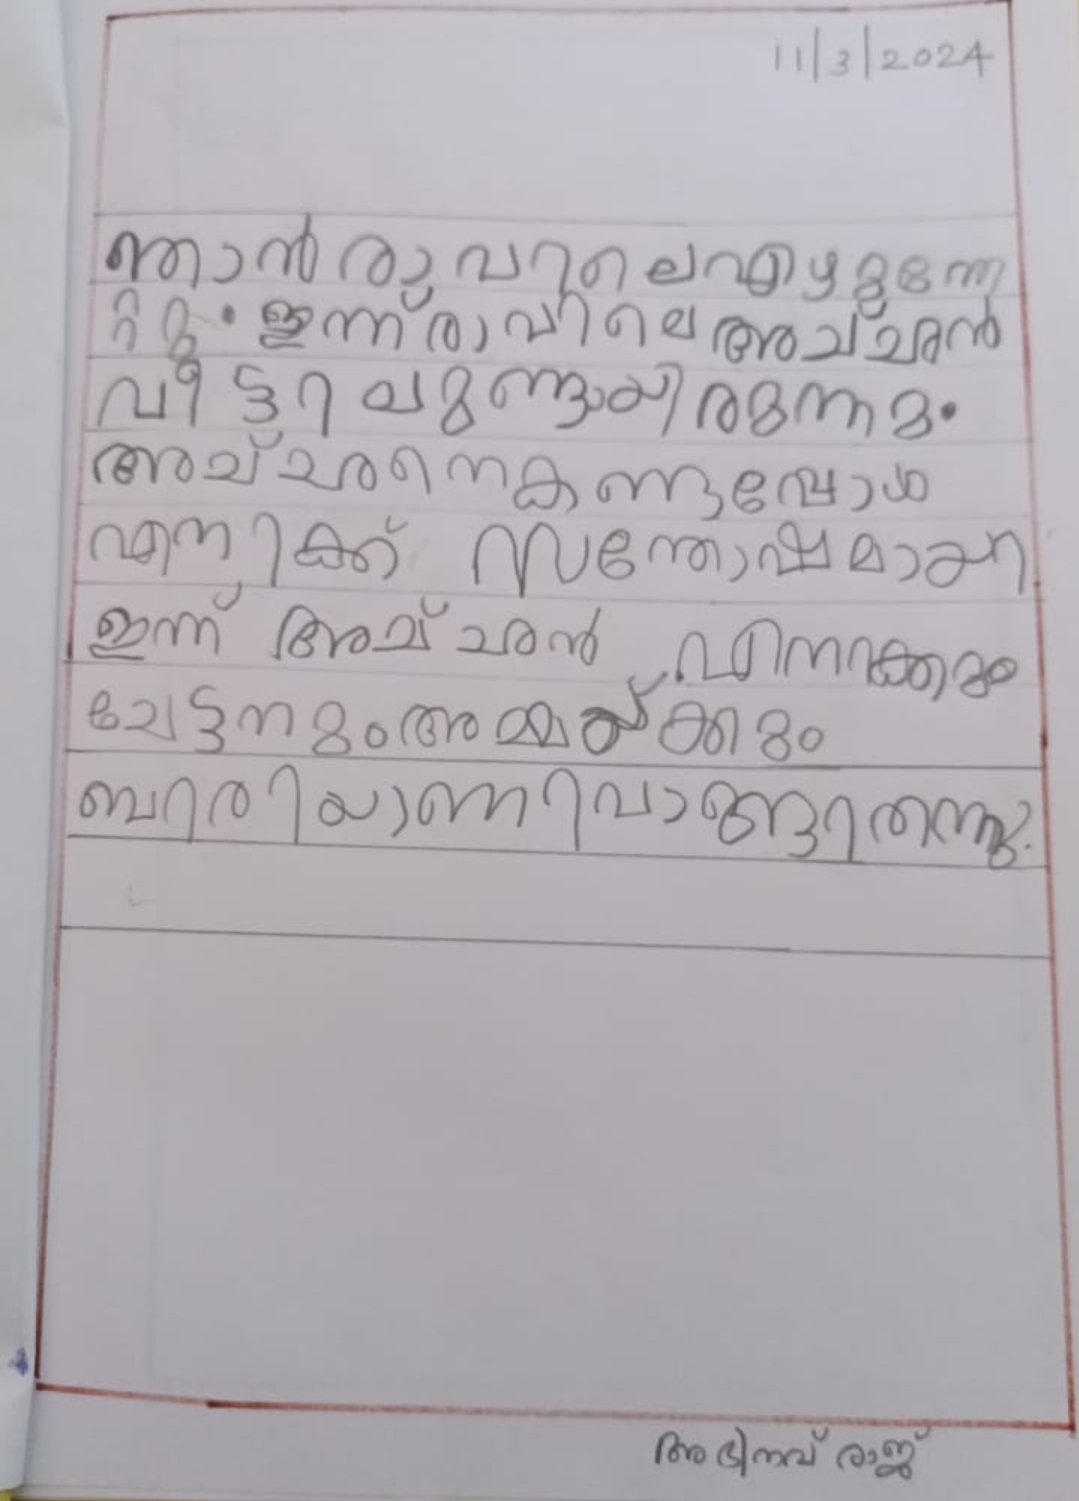 11/3/2024
ഞാൻ രാവിലെ എഴുന്നേ
റ്റു. ഇന്ന് രാവിലെ അച്ഛൻ
വീട്ടിലുണ്ടായിരുന്നു.
അച്ഛനെ കണ്ടപ്പോൾ
എനിക്ക് സന്തോഷമായി
ഇന്ന് അച്ഛൻ എനിക്കും
ചേട്ടനും അമ്മയ്ക്കും
ബിരിയാണി വാങ്ങി തന്നു.
അഭിനവ് രാജ്